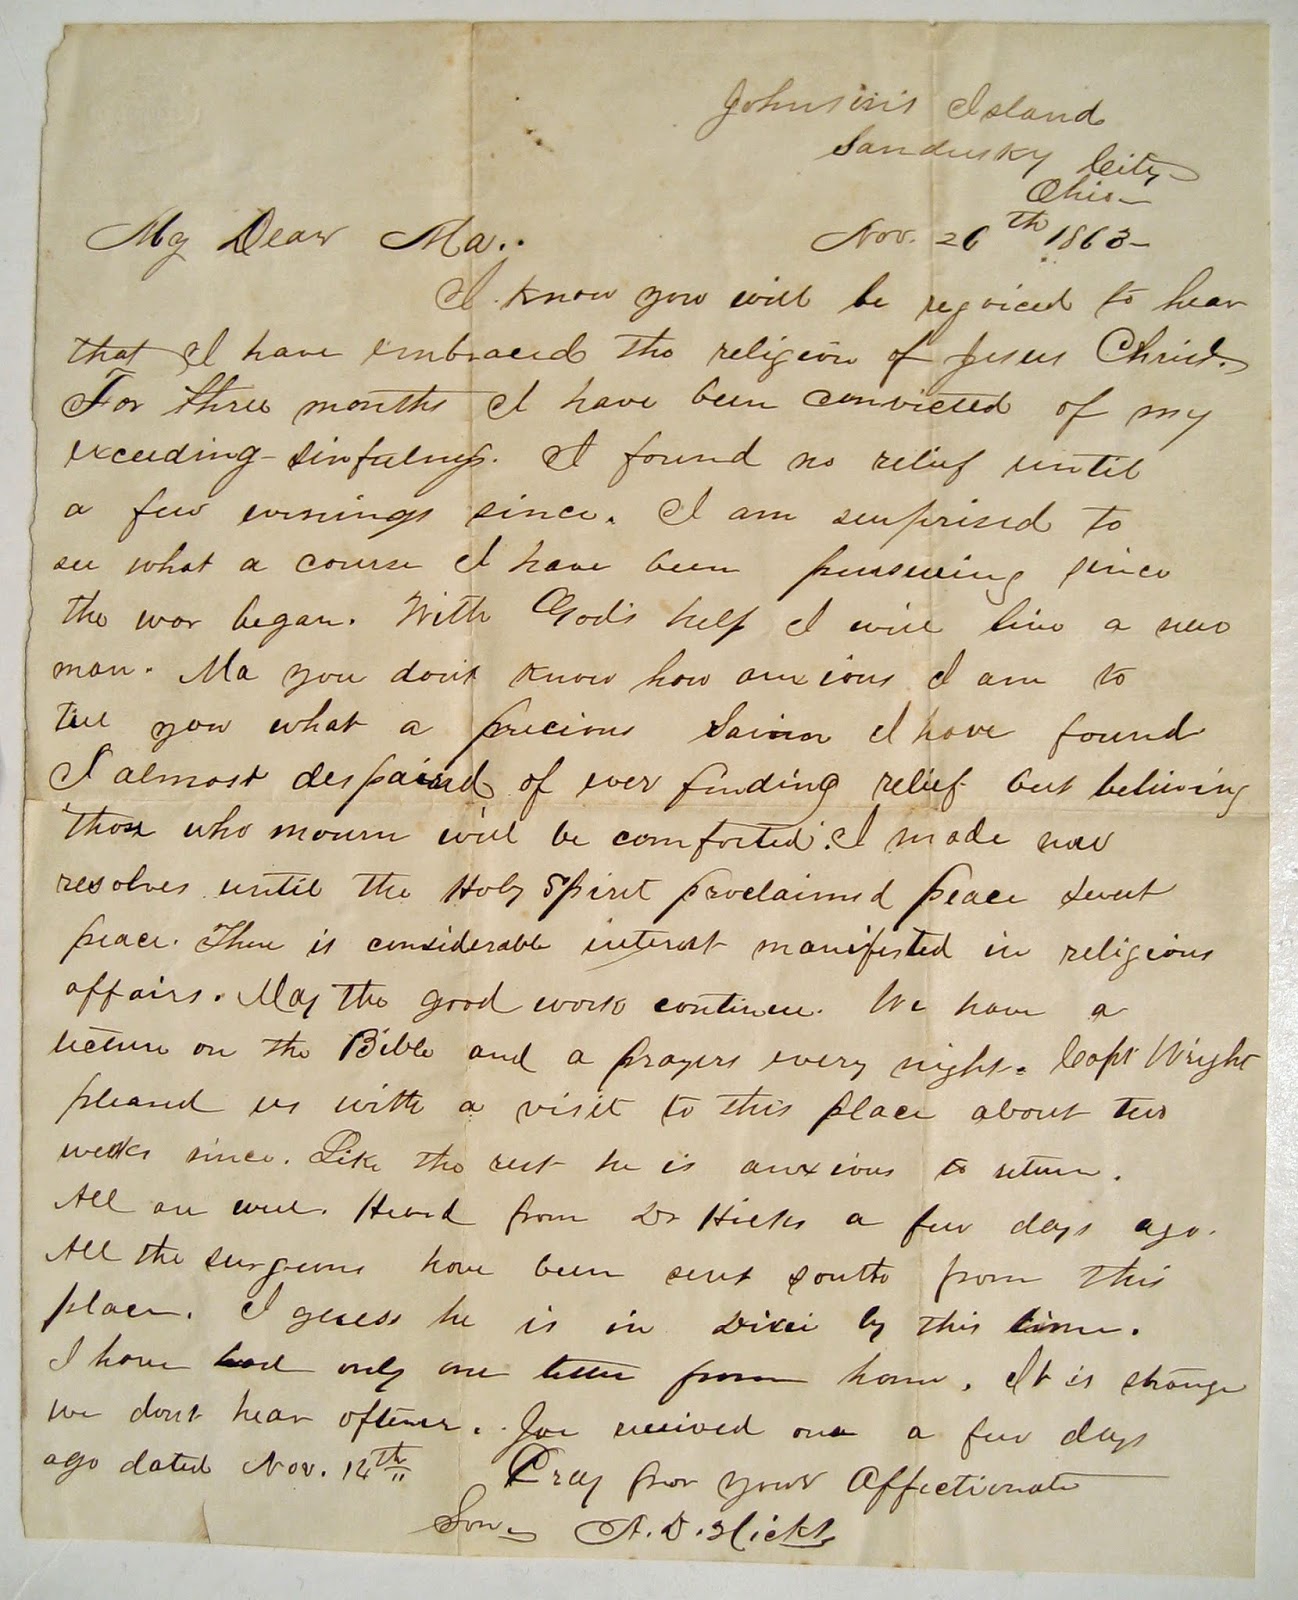 Johnson's Island
Sandusky City
Ohio—
My Dear Ma.. Nov. 26th 1863—
I know you will be rejoiced to hear
that I have embraced the religion of Jesus Christ.
For three months I have been convicted of my
exceeding sinfulness. I found no relief until
a few evenings since. I am surprised to
see what a course I have been pursueing since
the war began. With God's help I will live a new
man. Ma you don't know how anxious I am to
tell you what a precious Savior I have found
I almost despaired of ever finding relief but believing
those who mourn will be comforted. I made new
resolves until the Holy Spirit proclaimed peace sweet
peace. There is considerable interest manifested in religious
affairs. May the good work continue. We have a
lecture on the Bible and a prayers every night. Capt Wright
pleased us with a visit to this place about two
weeks since. Like the rest he is anxious to return.
All are well. Heard from Dr Hicks a few days ago.
All the surgeons have been sent south from this
place. I guess he is in Dixie by this time.
I have had only one letter from home. It is strange
we dont hear oftener. Joe received one a few days
ago dated Nov. 14th Pray for your Affectionate
Son— A. D. Hicks